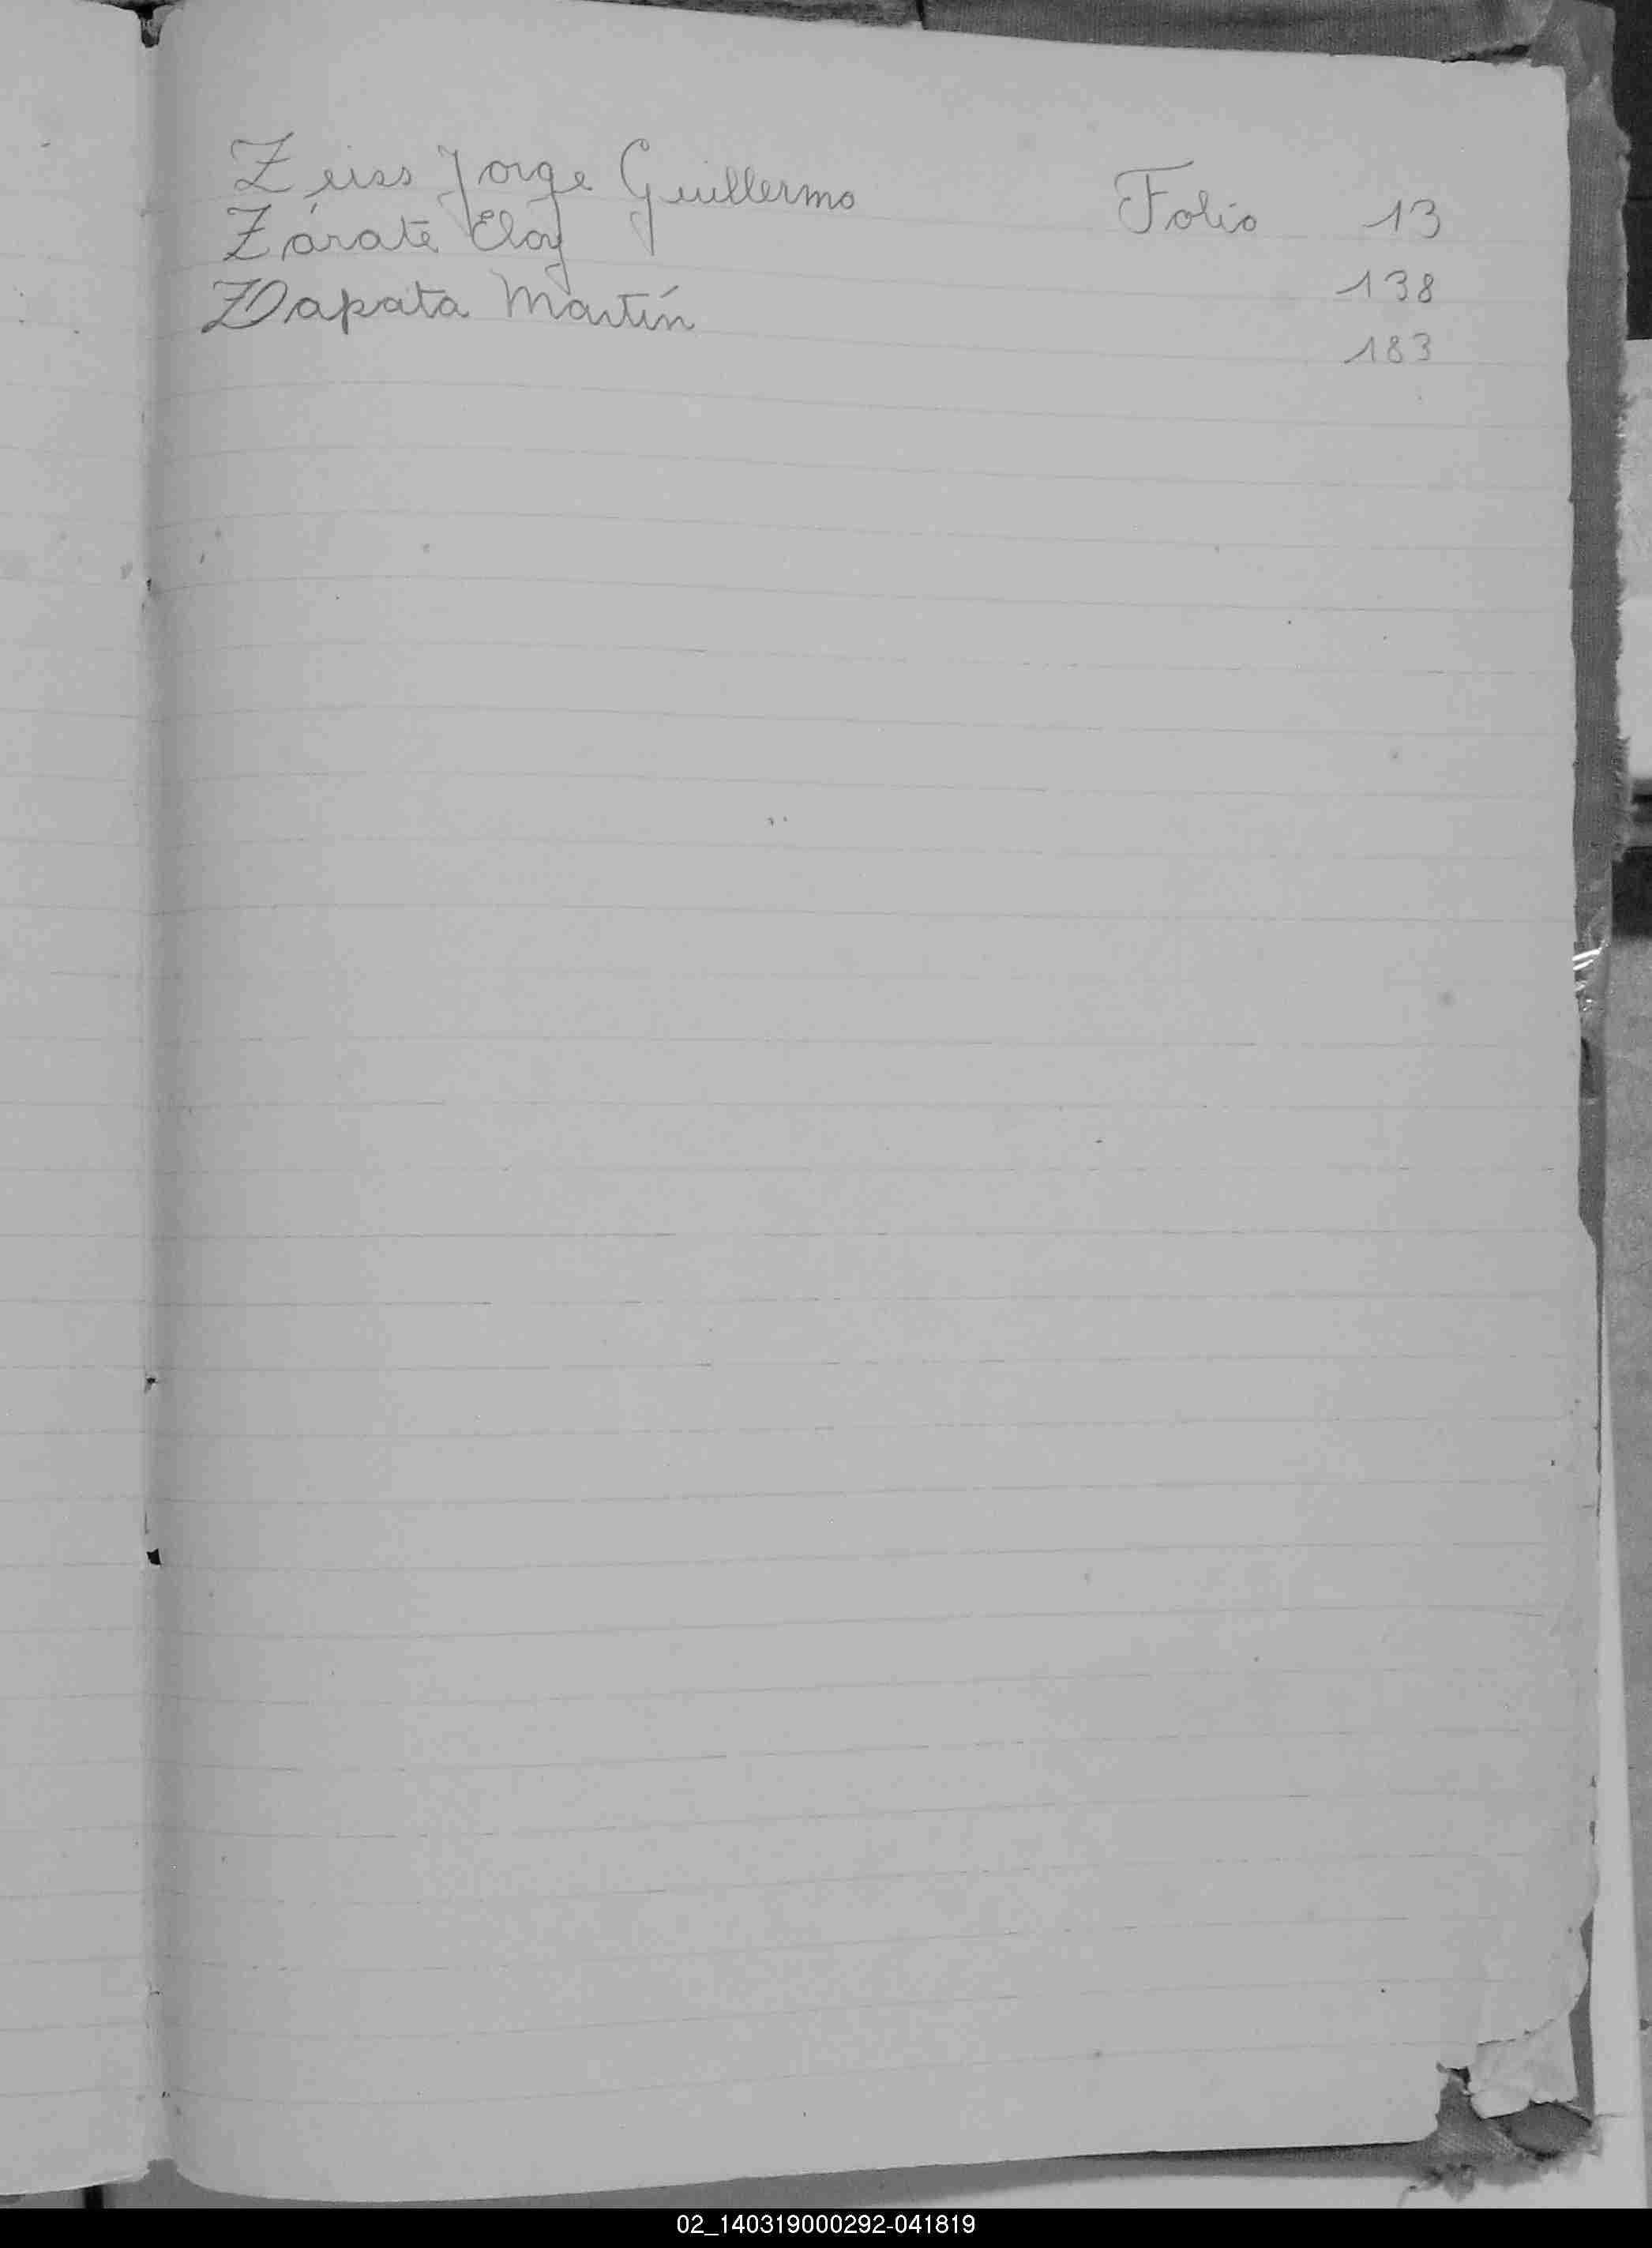 Zeiss Jorge Guillermo Folio 13
Zárate Eloy 138
Zapata Martín 183
02_140319000292-041819